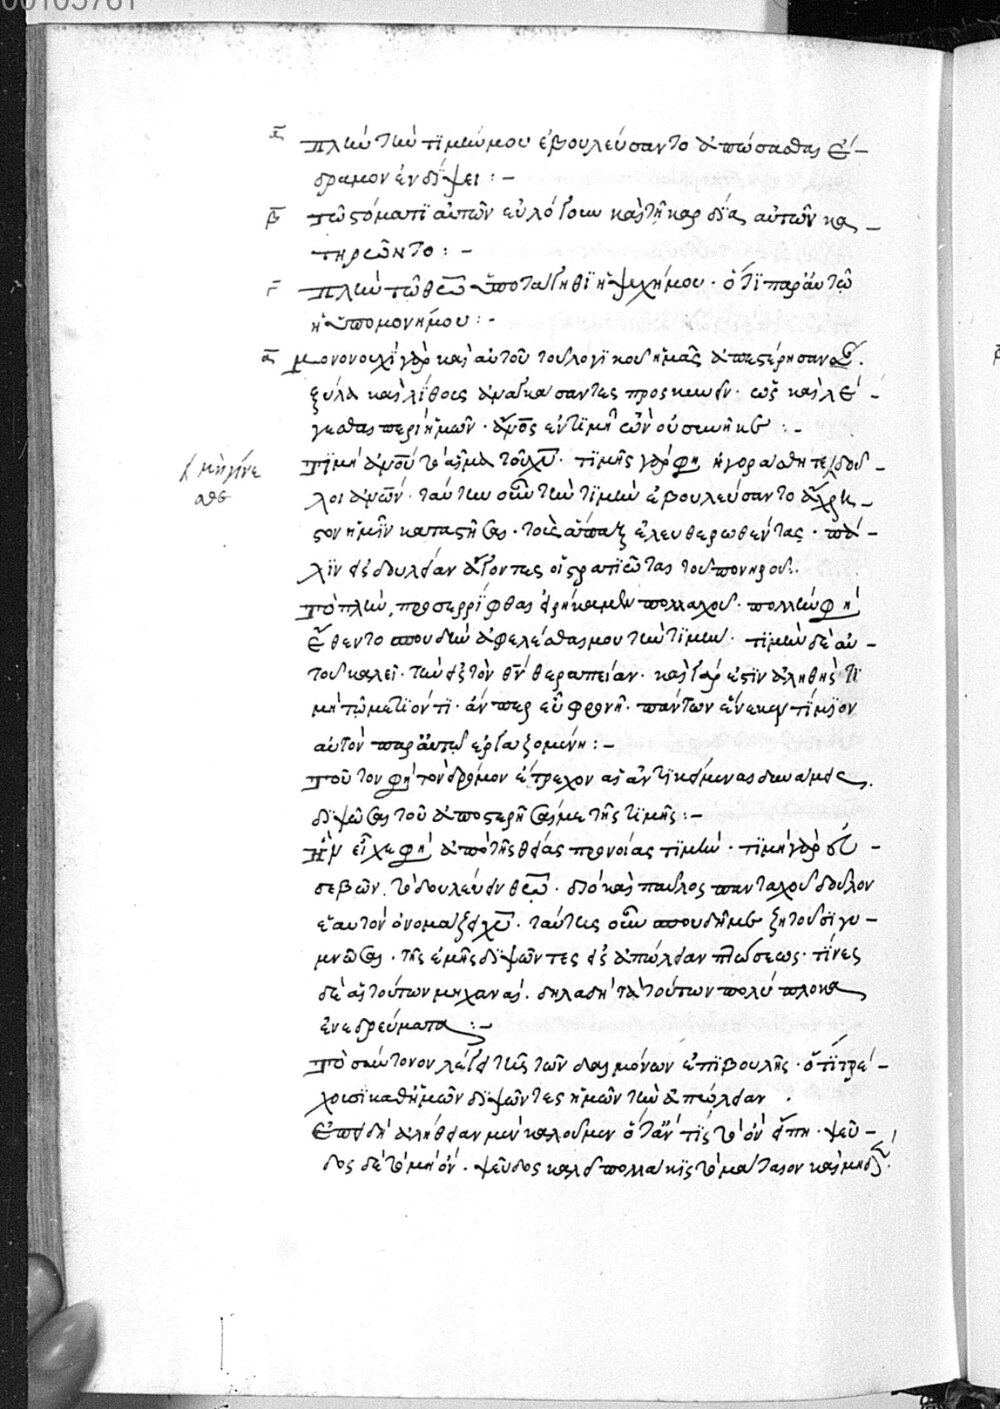 00105781
α πλὴν τὴν τιμήν μου ἐβουλεύσαντο ἀπώσασθαι ἔ-
δραμον ἐν δίψει:-
β τῷ στόματι αὐτῶν εὐλόγουν καὶ τῇ καρδία αὐτῶν κα-
τηρῶντο:-
γ πλὴν τῷ θεῷ ὑποτάγηθι ἡ ψυχή μου· ὅτι παρ' αὐτῷ
ἡ ὑπομονή μου:-
α μονονουχὶ γὰρ καὶ αὐτοῦ τοῦ λογικοῦ ἡμᾶς ἀπεστέρησαν
ξύλα καὶ λίθους ἀναγκάσαντες προσκυνεῖν· ὡς καὶ λέ-
γεσθαι περὶ ἡμῶν· ἄνος ἐν τιμῇ ὢν οὐ συνῆκε:-
Τιμὴ ἀνοῦ τὸ αἷμα τοῦ χῦ· τιμῆς γὰρ φη ἠγοράσθητε δοῦ-
λοι ἀνων· ταύτην οὖν τὴν τιμὴν ἐβουλεύσαντο
μὴ γίνε
σθε
στον ἡμῖν καταστῆσαι· τοὺς ἅπαξ ἐλευθερωθέντας· πά-
λιν εἰς δουλείαν ἄγοντες οἱ στρατιῶται τοῦ πονηροῦ:.
Τὸ πλὴν, προσερρίφθαι εἰρήκαμεν πολλαχοῦ· πολλὴν φη
ἔθεντο σπουδὴν ἀφελέσθαι μου τὴν τιμήν· τιμὴν δὲ αὐ-
τοῦ καλεῖ· τὴν εἰς τὸν θν θεραπείαν· καὶ γάρ ἐστιν ἀληθὴς τι
μὴ τῷ μετιόντι· ἄνπερ εὖ φρονῇ· πάντων ἕνεκεν τίμιον
αὐτὸν παρ' αὐτῷ ἐργαζομένη:-
Τοῦτον φη τὸν δρόμον ἔτρεχον αἱ ἀντικείμεναι δυνάμεις
διψῶσαι τοῦ ἀποστερῆσαί με τῆς τιμῆς:-
Ἣν εἶχε φη ἀπὸ τῆς θείας προνοίας τιμήν· τιμὴ γὰρ
σεβῶν. τὸ δουλεύειν θεῷ· διὸ καὶ παῦλος πανταχοῦ δοῦλον
ἑαυτὸν ὀνομάζει χῦ· ταύτης οὖν σπουδῆ με ζητοῦσι γυ-
μνῶσαι· τῆς ἐμῆς διψῶντες εἰς ἀπώλειαν πτώσεως· τίνες
δὲ αἱ τούτων μηχαναί. δηλαδὴ τὰ τούτων πολύπλοκα
ἐνεδρεύματα:-
Τὸ σύντονον λέγει τῆς τῶν δαιμόνων ἐπιβουλῆς· ὅτι τρέ-
χουσι καθ' ἡμῶν διψῶντες ἡμῶν τὴν ἀπώλειαν.
Ἐπειδὴ ἀλήθειαν μὲν καλοῦμεν ὅταν τις τὸ ὂν εἴπη· ψεῦ-
δος δὲ τὸ μὴ ὄν· ψεῦδος καλεῖ πολλάκις τὸ μάταιον καὶ